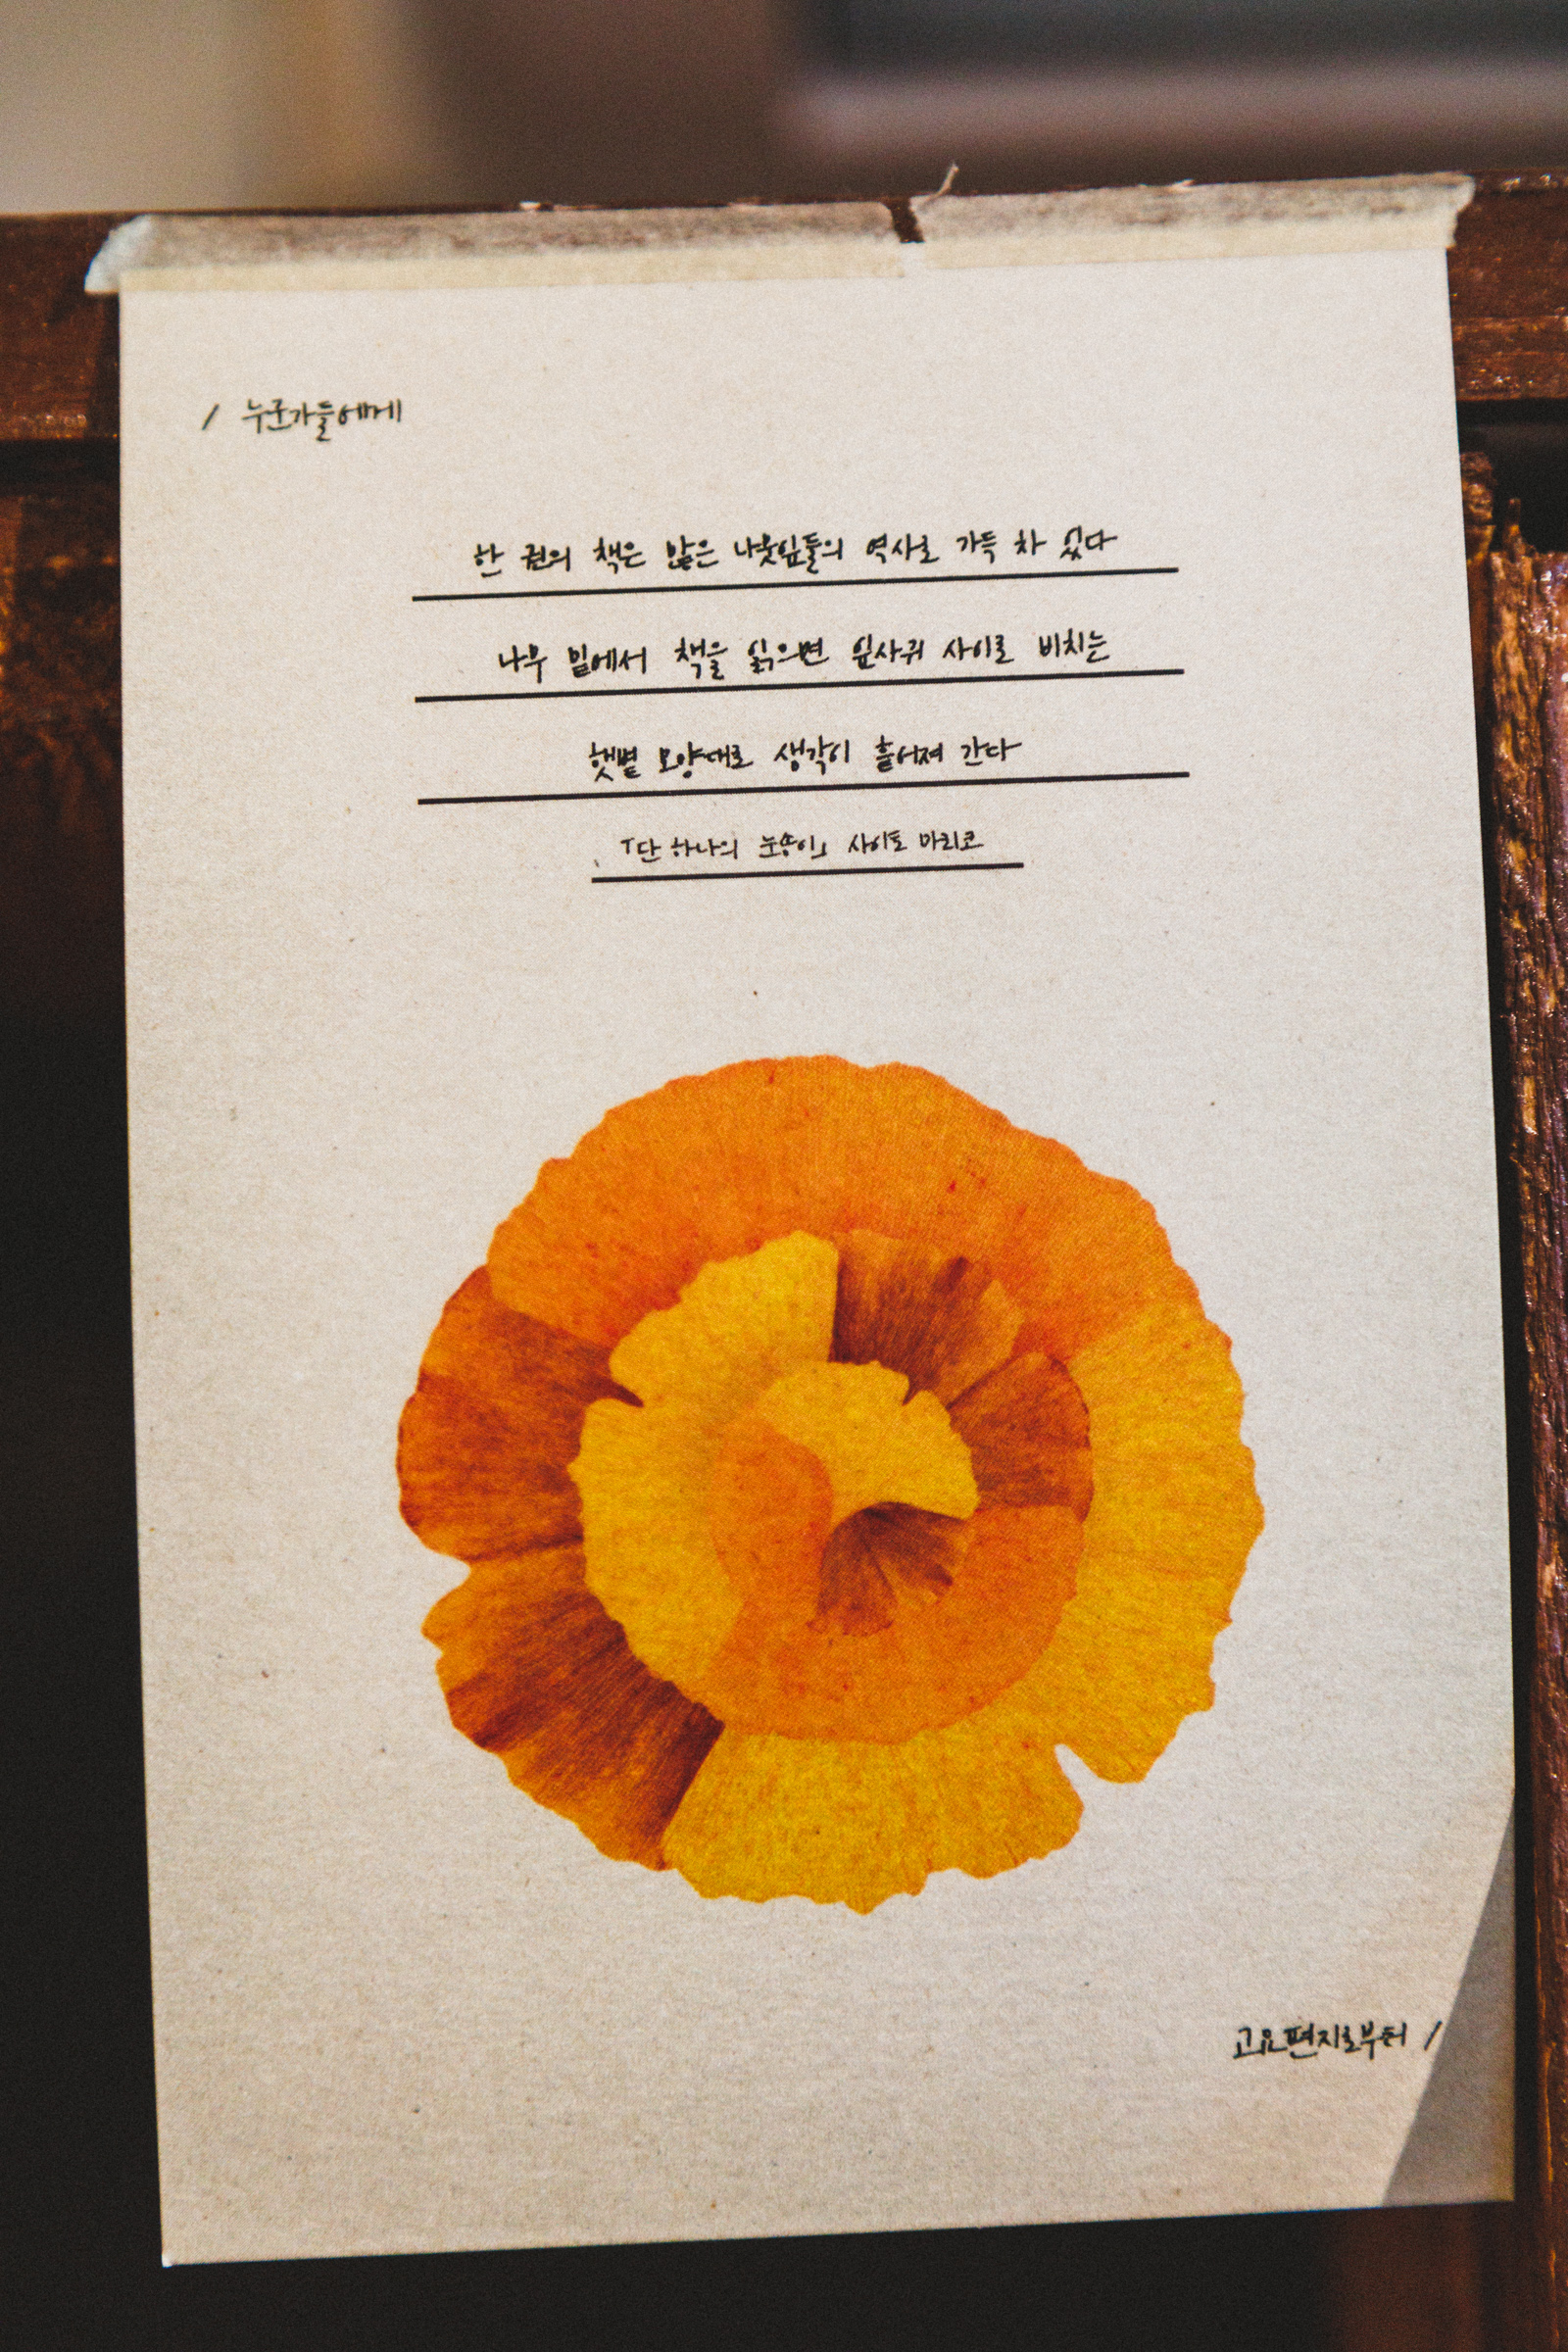 / 누군가들에게
한 권의 책은 많은 나뭇잎들의 역사로 가득 차 있다
나무 밑에서 책을 읽으면 잎사귀 사이로 비치는
햇볕 모양대로 생각이 흩어져 간다
「단 하나의 눈송이」 사이토 마리코
고요편지로부터 /